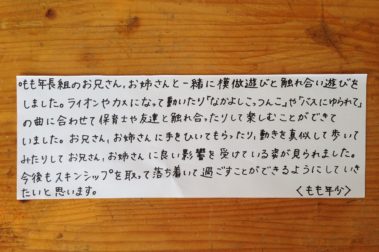 ○もも年長組のお兄さん、お姉さんと一緒に模倣遊びと触れ合い遊びを
しました。ライオンやカメになって動いたり「なかよしこっつんこ」や「バスにゆられて」
の曲に合わせて保育士や友達と触れ合ったりして楽しむことができて
いました。お兄さん、お姉さんに手をひいてもらったり、動きを真似して歩いて
みたりしてお兄さん、お姉さんに良い影響を受けている姿が見られました。
今後もスキンシップを取って落ち着いて過ごすことができるようにしていき
たいと思います。
〈もも年少〉